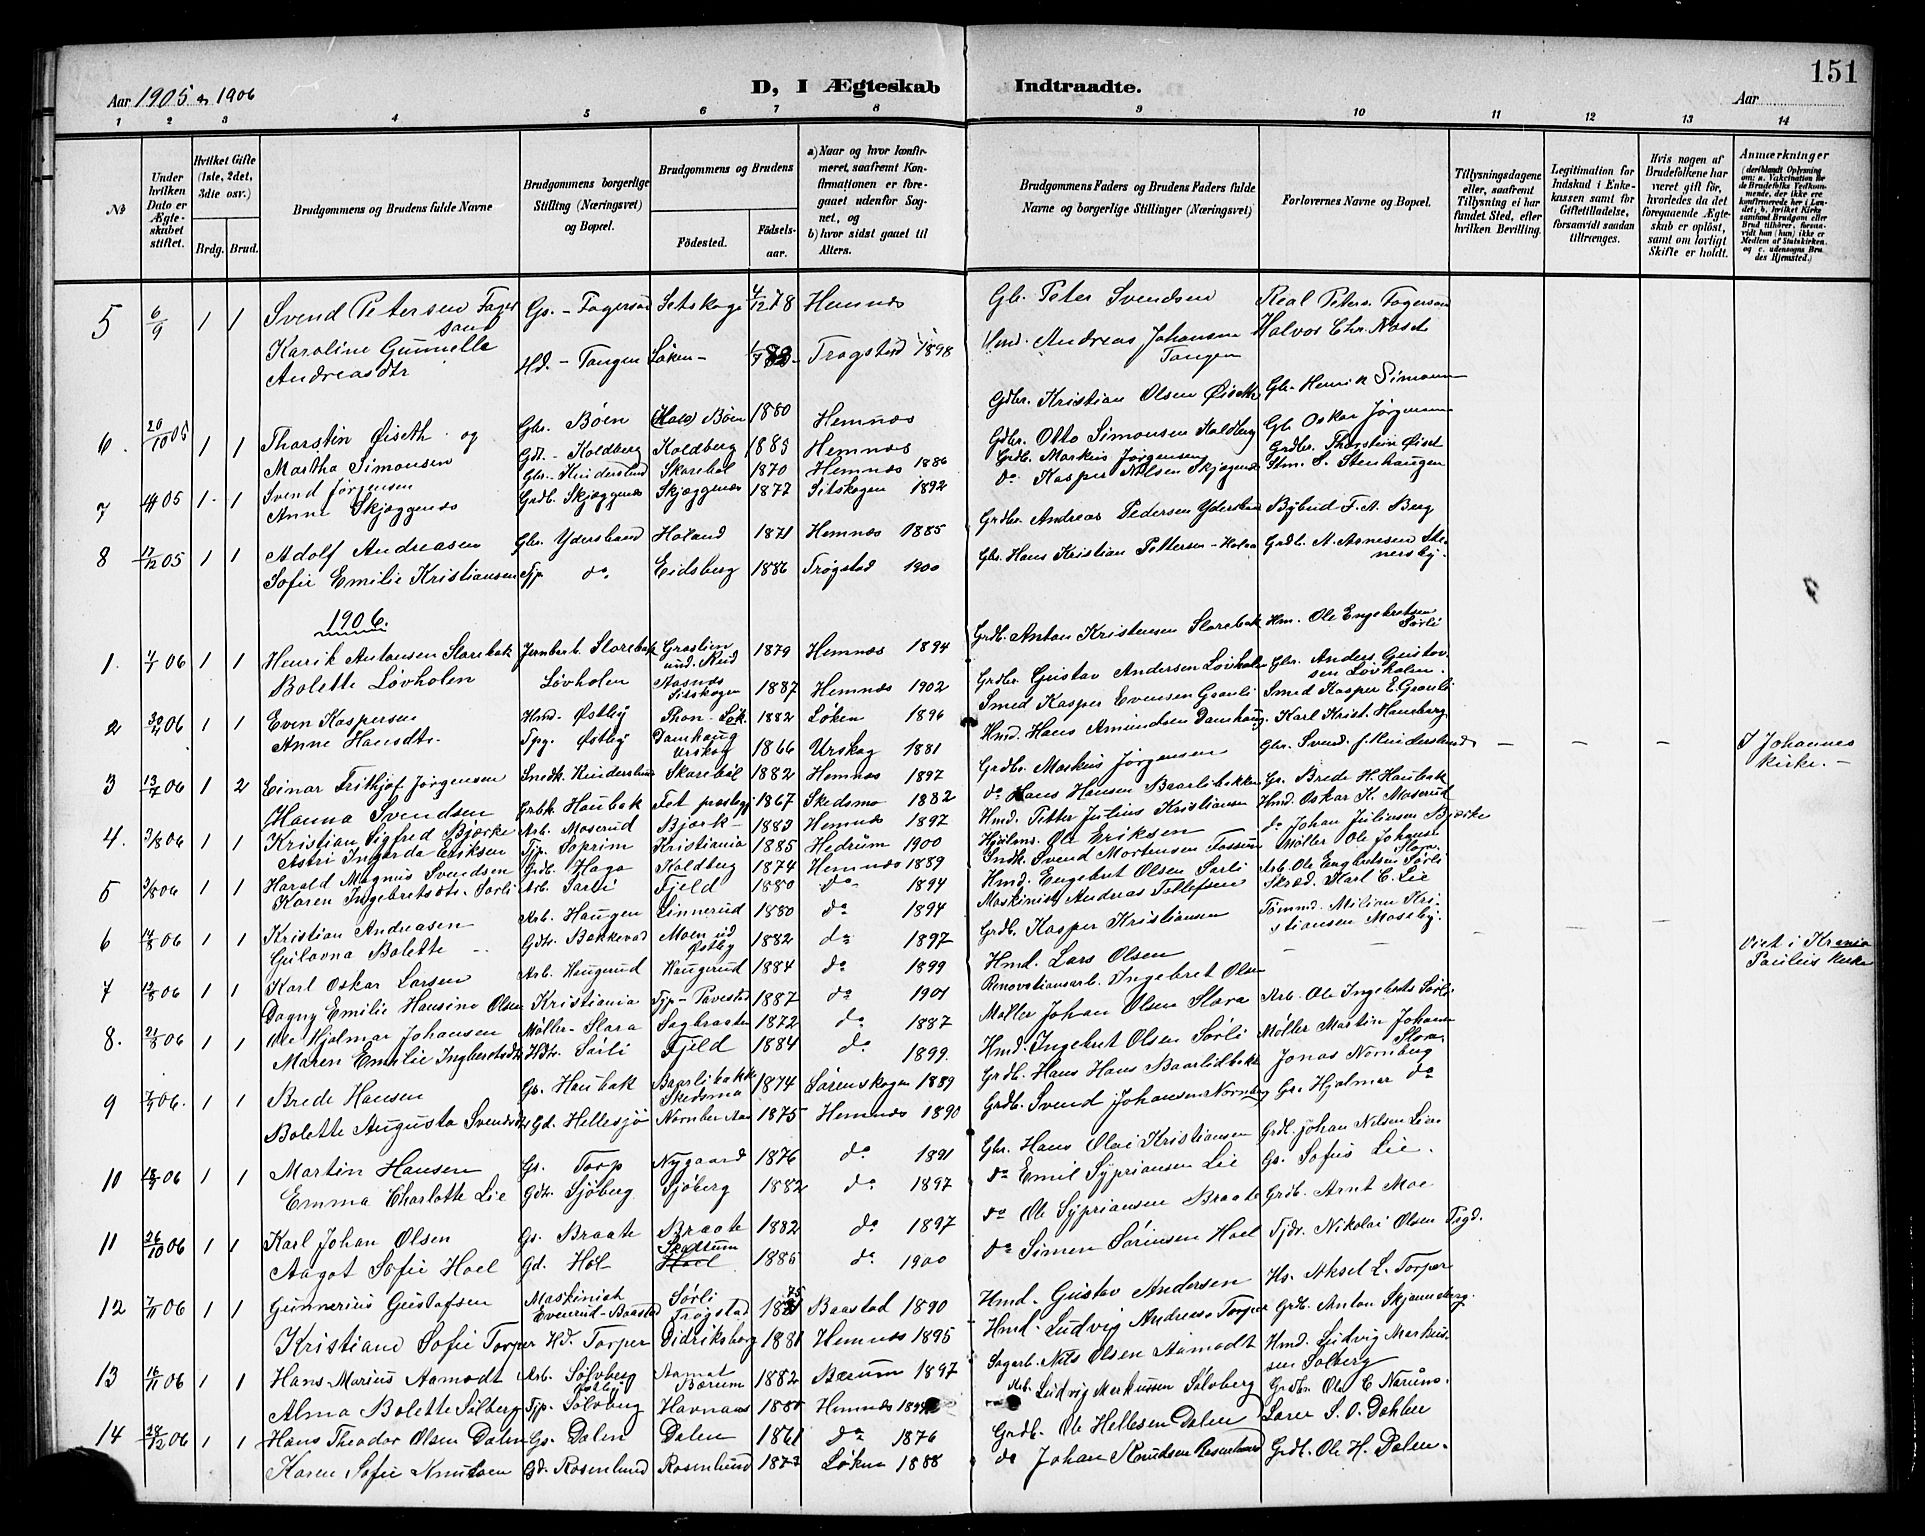 151
Aar 1905 & 1906
D, I Ægteskab Indtraadte.
Aar
1 2 3 4 5 6 7 8 9 10 11 12 13 14
No
Under hvilken Dato er Ægteskabet stiftet.
Hvilket Gifte (1ste, 2det, 3die osv.)
Brdg. Brud.
Brudgommens og Brudens fulde Navne
Brudgommens borgerlige Stilling (Næringsvei) og Bopæl.
Brudgommens og Brudens
Fødested.
Fødselsaar.
a) Naar og hvor konfirmeret, saafremt Konfirmationen er foregaaet udenfor Sognet, og
b) hvor sidst gaaet til Alters.
Brudgommens Faders og Brudens Faders fulde Navne og borgerlige Stillinger (Næringsvei)
Forlovernes Navne og Bopæl.
Tillysningsdagene eller, saafremt Tillysning ei har fundet Sted, efter hvilken Bevilling.
Legitimation for Indskud i Enkekassen samt for Giftetilladelse, forsaavidt saadan tiltrænges.
Hvis nogen af Brudefolkene har været gift før, hvorledes da det foregaaende Ægteskab er opløst, samt om lovligt Skifte er holdt.
Anmærkninger
5 6/9 1 1 Svend Petersen Fagersand Gs. - Fagersand Setskoge 4/12 78 Hemnæs Gb. Peter Svendsen Real Peters. Fagersand
Karoline Gunnelle Andreasdtr Hd. - Tangen Løken - Trøgstad 1898 Hmd. Andreas Johansen Tangen Halvor Chr. Næset
6. 20/10 05 1 1 Thorstin Øiseth og Gbr. Bøen Bøen 1880 Hemnæs Gdbr. Kristian Olsen Øiseth Gbr. Henrik Simonsen
Martha Simonsen Gd. - Koldberg Koldberg 1885 Hemnæs Gdbr. Otto Simonsen Koldberg Gb. Oskar Jørgensen
7 05 1. 1 Svend Jørgensen Gbr. Kinderslund Skarebøl 1870 Hemnæs 1886 Grdb. Markus Jørgensen Grdbr. Thorstin Øiset
Anne Skjæggenæs Grdb. Skjæggenæs Skjæggenæs 1877 Sitskogen 1892 do Kasper Nilsen Skjæggenæs Stm. S. Stenhaugen
8 17/12 05 1 1 Adolf Andreasen Gbr. Ydersland Høland 1871 Hemnæs 1885 Grdbr. Andreas Pedersen Ydersland Bybud F. A. Berg
Sofie Emilie Kristiansen Tjp do. Eidsberg 1886 Trøgstad 1900 Gbr. Hans Kristian Pettersen - Grdb. A. Asnesen Stenersby.
1906.
1. 06 1 1 Henrik Antonsen Slorebak Jernbarb. Slorebak 1879 Hemnæs 1894 Grdb. Anton Kristensen Slorebak Hm. Ole Engebretsen Sørli
Bolette Løvholen Løvholen Aasnæs Sitskogen 1887 Hemnæs 1902 Grdbr. Gustav Andersen Løvholen Gbr. Anders Gustavsen Løvholen.
2 06 1 1 Even Kaspersen Hmd. Østby 1882 Løken 1896 Smed Kasper Evensen Granli Smed Kasper E. Granli
Anne Hansdtr. Tpg. Østby Damhaug Urskog 1866 Urskog 1881 Hmd. Hans Amundsen Damhaug. Karl Krist. Hansberg
3 13/7 06 1 2 Einar Frithjof Jørgensen Snedk. Kinderslund Skarebøl 1882 Hemnæs 1897 Grdbr. Markus Jørgensen Gbr. Svend J. Kinderslund - - - I Johannes Kirke. -
Hanna Svendsen Haubak 1867 Skedsmo 1882 do Hans Hansen Baarlibakken Gs. Brede H. Haubak
4. 06 1 1 Kristian Sigfred Bjørke Arb. Moserud Bjørk 1883 Hemnæs 1897 Hmd. Petter Julius Kristiansen Hmd. Oskar K. Moserud
Astri Ingarda Eriksen Tjp. Soprim Kristiania 1885 Hedrum 1900 Hjulm. Ole Eriksen do Johan Julinsen Bjørke
5 06 1 1 Harald Magnus Svendsen Grdb. Haga Koldberg 1874 Hemnæs 1889 Indh. Svend Mortensen Fossum Møller Ole Johansen Slora.
Karen Ingebretsdtr. Sørli Arb. Sørli Fjeld 1880 do 1894 Hmd. Engebret Olsen Sørli Arb. Ole Engbretsen Sørli
6 14/8 06 1 1 Kristian Andreasen Arb. Haugen Linnerud 1880 do 1894 Maskinist Andreas Tollefsen Skræd. Karl C. Lie
Gulovna Bolette - Gdtr. Bakkevad Moen ud Østby 1882 do 1897 Grdb. Kasper Kristiansen Tømmd. Milian Kristiansen Moseby.
7 06 1 1 Karl Oskar Larsen Arb. Haugerud Haugerud 1884 do 1899 Hmd. Lars Olsen - - - - - Viet i Krania Paulus Kirke
Dagny Emilie Hansine Olsen Kristiania 1887 do 1901 Renovationsarb. Ingebret Olsen
8. 06 1 1 Ole Hjalmar Johansen Møller - Slora Sagbraaten 1872 do 1887 Møller Johan Olsen Slora Arb. Ole Ingebrets. Sørli
Maren Emilie Ingbretsdtr Hdtr. Sørli Fjeld 1884 do 1899 Hmd. Ingebret Olsen Sørli Møller Martin Johansen Slora
9 06. 1 1 Brede Hansen Gs. Haubak Baarlibakk Skedsmo 1874 Sørenskogen 1889 Grdb. Hans Hans Baarlidbakk Jonas Nornberg
Bolette Augusta Svendsdtr Gd. Hellesjø 1875 Hemnæs 1890 Grdb. Svend Johansen Nornberg Gs. Hjalmar do
10 06 1 1 Martin Hansen Gs. Torp Nygaard 1876 do 1891 Gbr. Hans Olai Kristiansen Grdb. Johan Nilsen Lien
Emma Charlotte Lie Gdtr. Sjøberg Sjøberg 1882 do 1897 do Emil Sypriansen Lie Gs. Sofus Lie.
11 26/10 06 1 1 Karl Johan Olsen Gs. Braate Braate 1882 do 1897 do Ole Sypriansen Braate Grdb. Arnt Moe
Aagot Sofie Hoel Gd. Hol Hoel 1885 do 1900 do Simen Sørensen Hoel Tjdr. Nikolai Olsen
12 7/11 06 1 1 Gunnerius Gustafsen Maskinist Evenrud - Baastad Sørli Trøgstad Baastad 1890 Hmd. Gustav Andersen Hs. Aksel L. Torper
Kristiane Sofie Torper Hd. Torper Didriksborg 1881 Hemnæs 1895 Hmd. Ludvig Andreas Torper Grdb. Anton Skjønneberg.
13 16/11 06 1 1 Hans Marius Aamodt Arb. Sølvberg Aamot Bærum 1882 Bærum 1897 Sagarb. Nils Olsen Aamodt Hmd. Ludvig Markussen Solberg
Alma Bolette Solberg Tjp. Sølvberg Havnaas Hemnæs Arb. Ludvig Markussen Sølvberg Grdbr. Ole C.
14 28/12 06 1 1 Hans Theodor Olsen Dalen Gs. Dalen Dalen 1861 do 1876 Grdb. Ole Hellesen Dalen Lærer S. O. Dahler
Karen Sofie Knutsen Gd. Rosenlund Rosenlund Løken 1888 do Johan Knudsen Rosenlund Grdb. Ole H. Dalen.